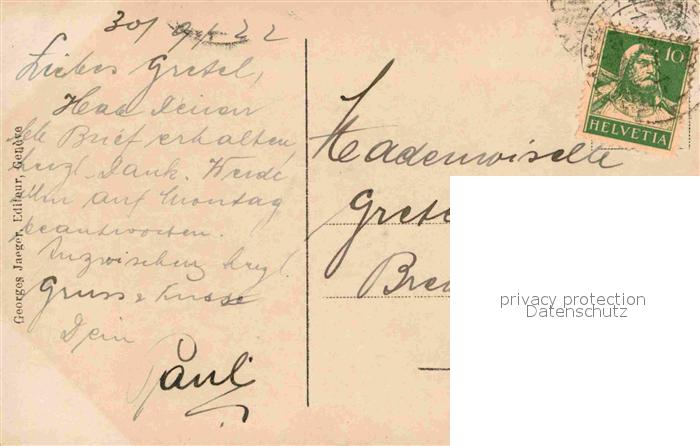 30/9/22
Liebes Gretel,
Habe Deinen
lb Brief erhalten,
herzl. Dank. Werde
ihn auf Montag
beantworten.
Inzwischen herzl.
Gruss & Kuss
Dein
Paul
Georges Jaeger, Editeur, Genève
10
HELVETIA
Mademoiselle
Gretel
privacy protection
Datenschutz